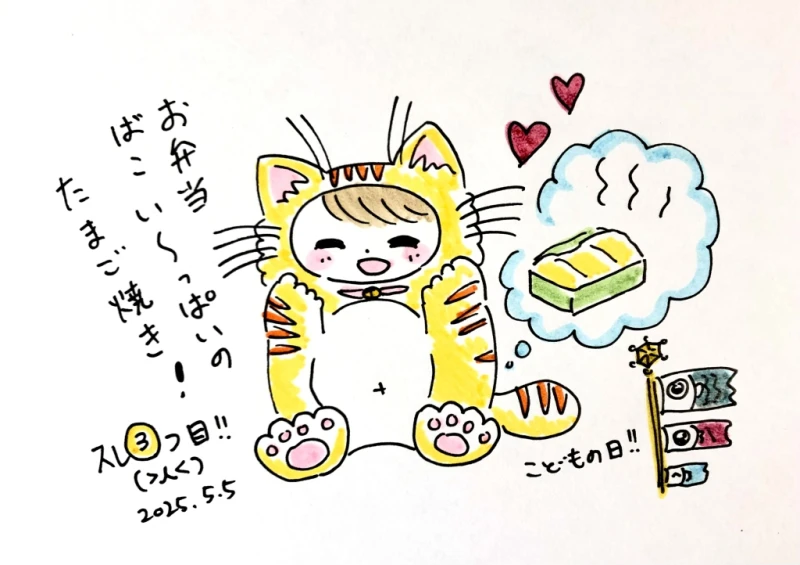 お弁当
ばこい〜っぱいの
たまご焼き!
スレ③つ目!!
(>人<)
2025.5.5
こどもの日!!